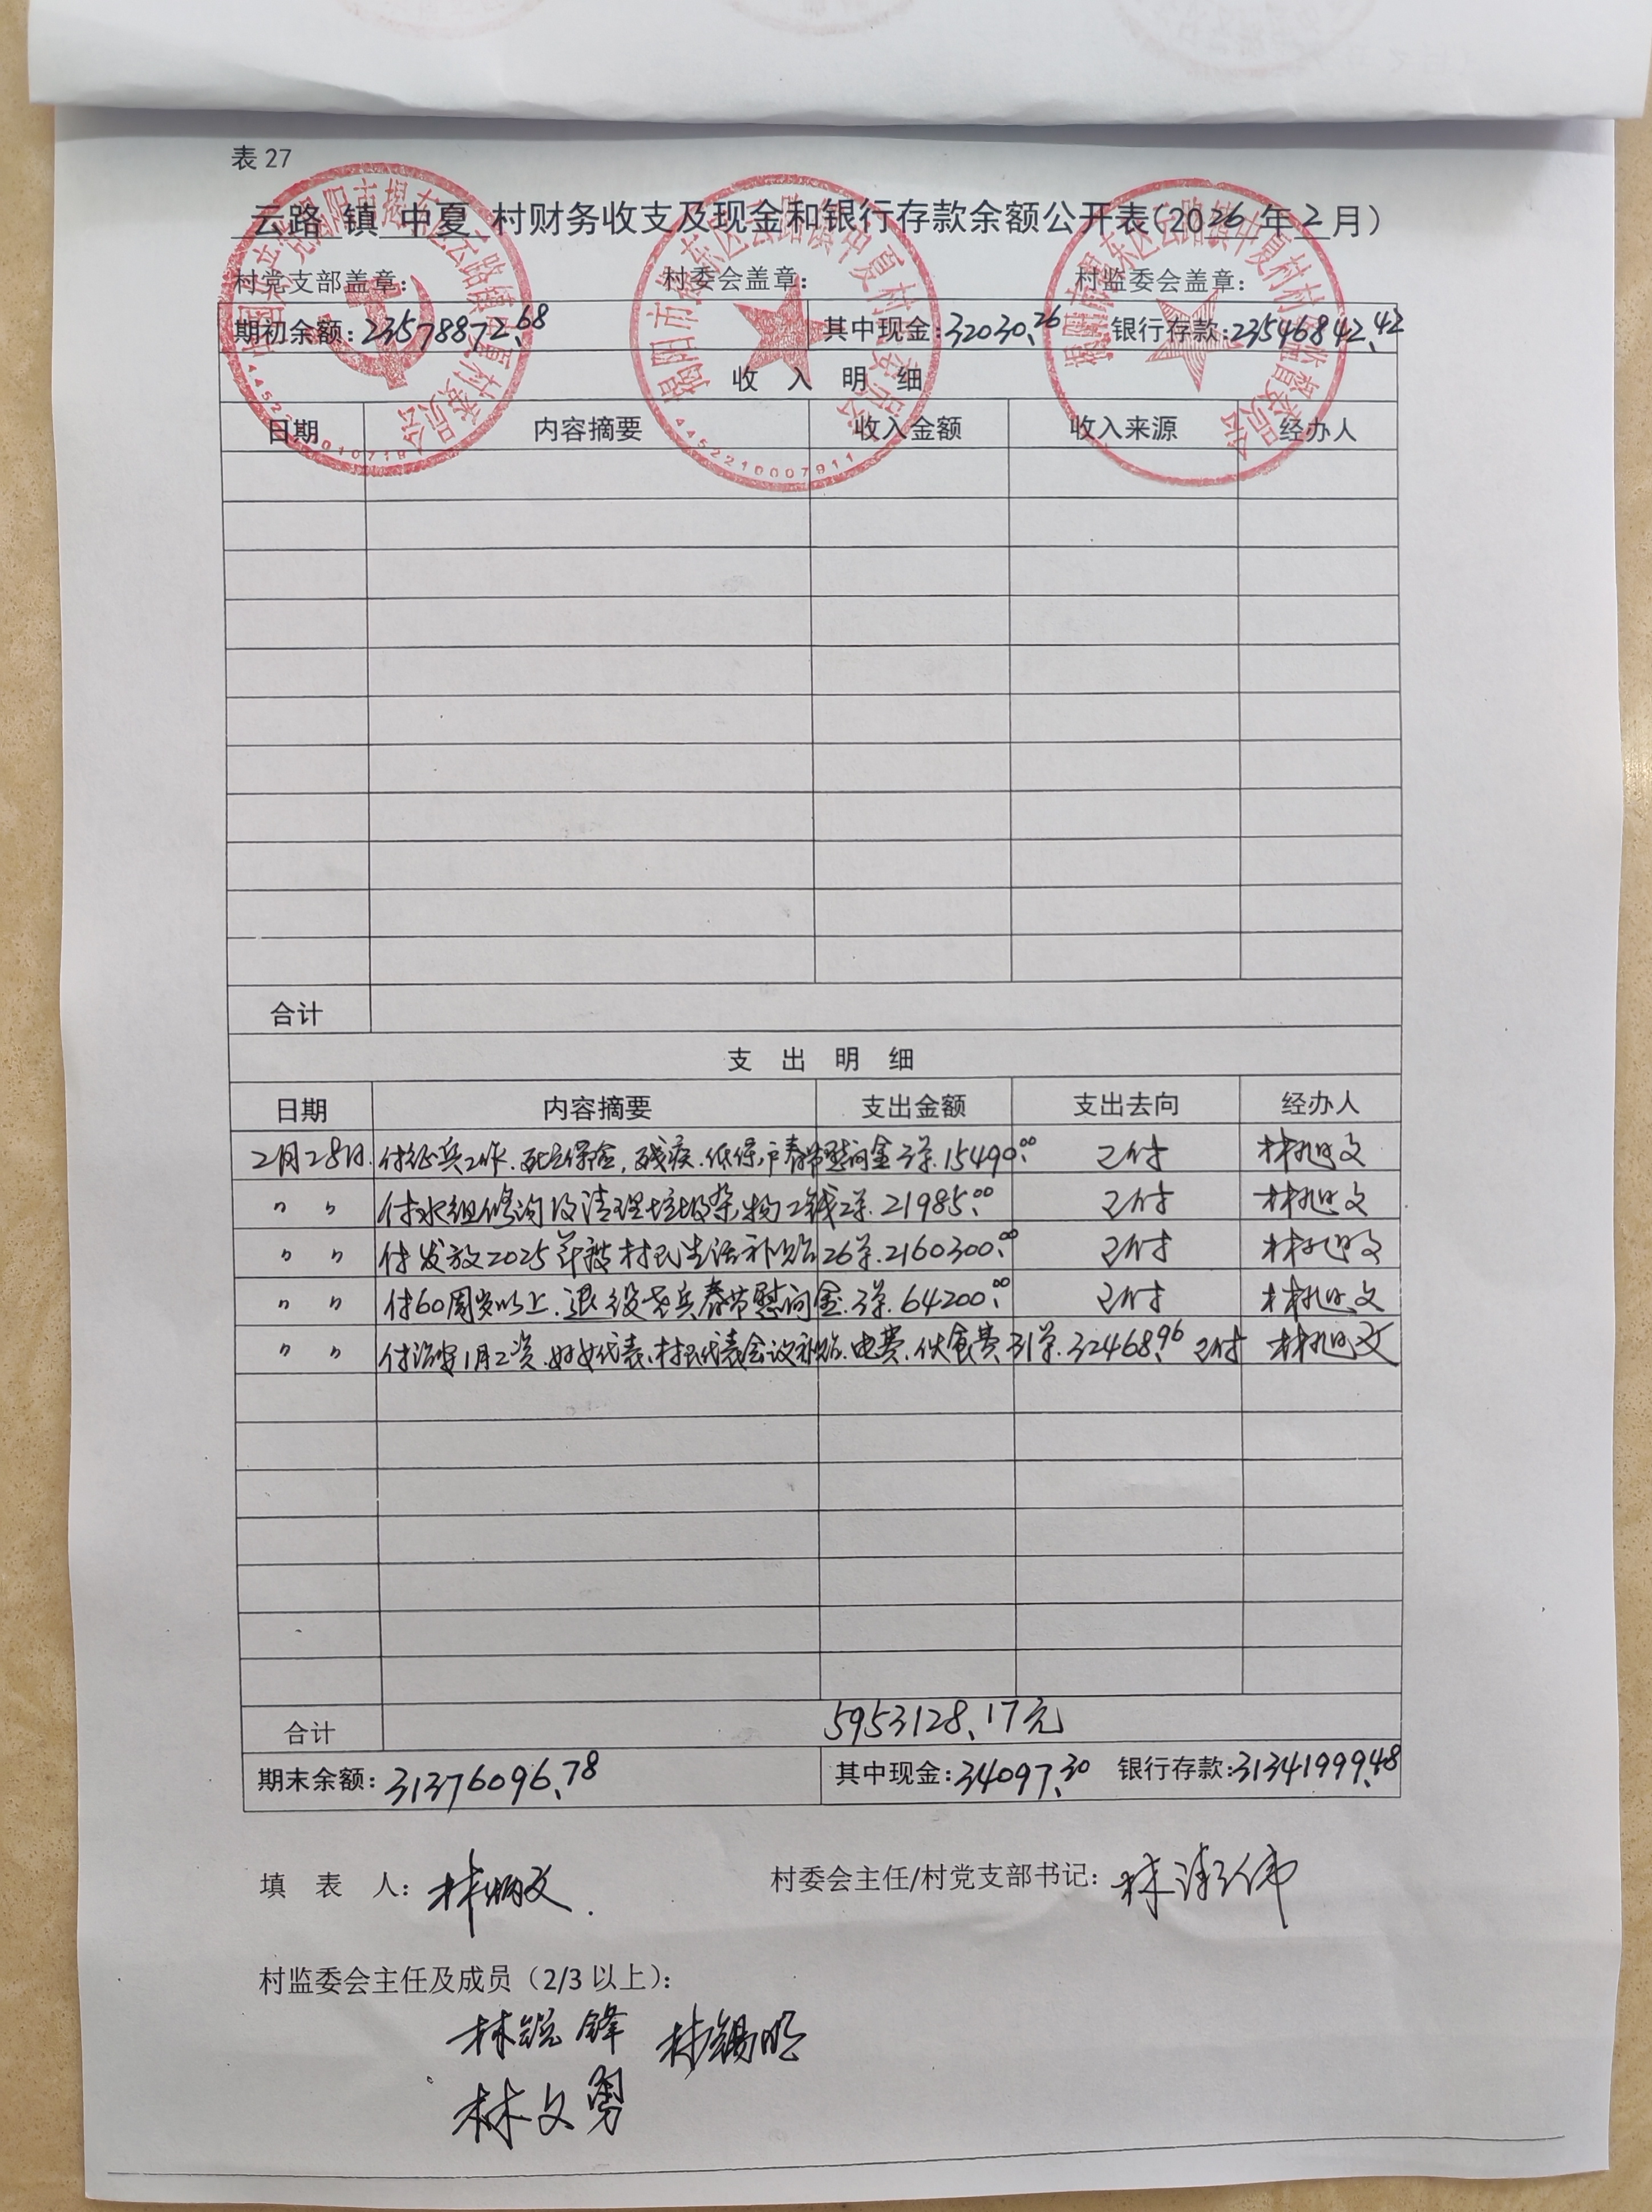 表 27
云路 镇 中夏 村财务收支及现金和银行存款余额公开表(2026年2月)
村党支部盖章: 村委会盖章: 村监委会盖章:
期初余额:23578872.68 其中现金:32030.26 银行存款:23546842.42
收 入 明 细
日期 内容摘要 收入金额 收入来源 经办人
合计
支 出 明 细
日期 内容摘要 支出金额 支出去向 经办人
2月28日 付征兵工作、死亡保险,残疾、低保户春节慰问金3单.15490.00 已付 林旭文
〃 〃 付水组修沟及清理垃圾杂物工钱2单.21985.00 已付 林旭文
〃 〃 付发放2025年被村民生活补贴26单.2160300.00 已付 林旭文
〃 〃 付60周岁以上.退役老兵春节慰问金.3单.64200.00 已付 林旭文
〃 〃 付治安1月工资.妇女代表、村民代表会议补贴.电费.伙食费31单.32468.96 已付 林旭文
合计 5953128.17元
期末余额:31376096.78 其中现金:34097.30 银行存款:31341999.48
填 表 人:林炳文 村委会主任/村党支部书记:林
村监委会主任及成员(2/3 以上):
林锐锋 林锡明
林文勇
揭阳市揭东区云路镇中夏村村民委员会
4452210007911